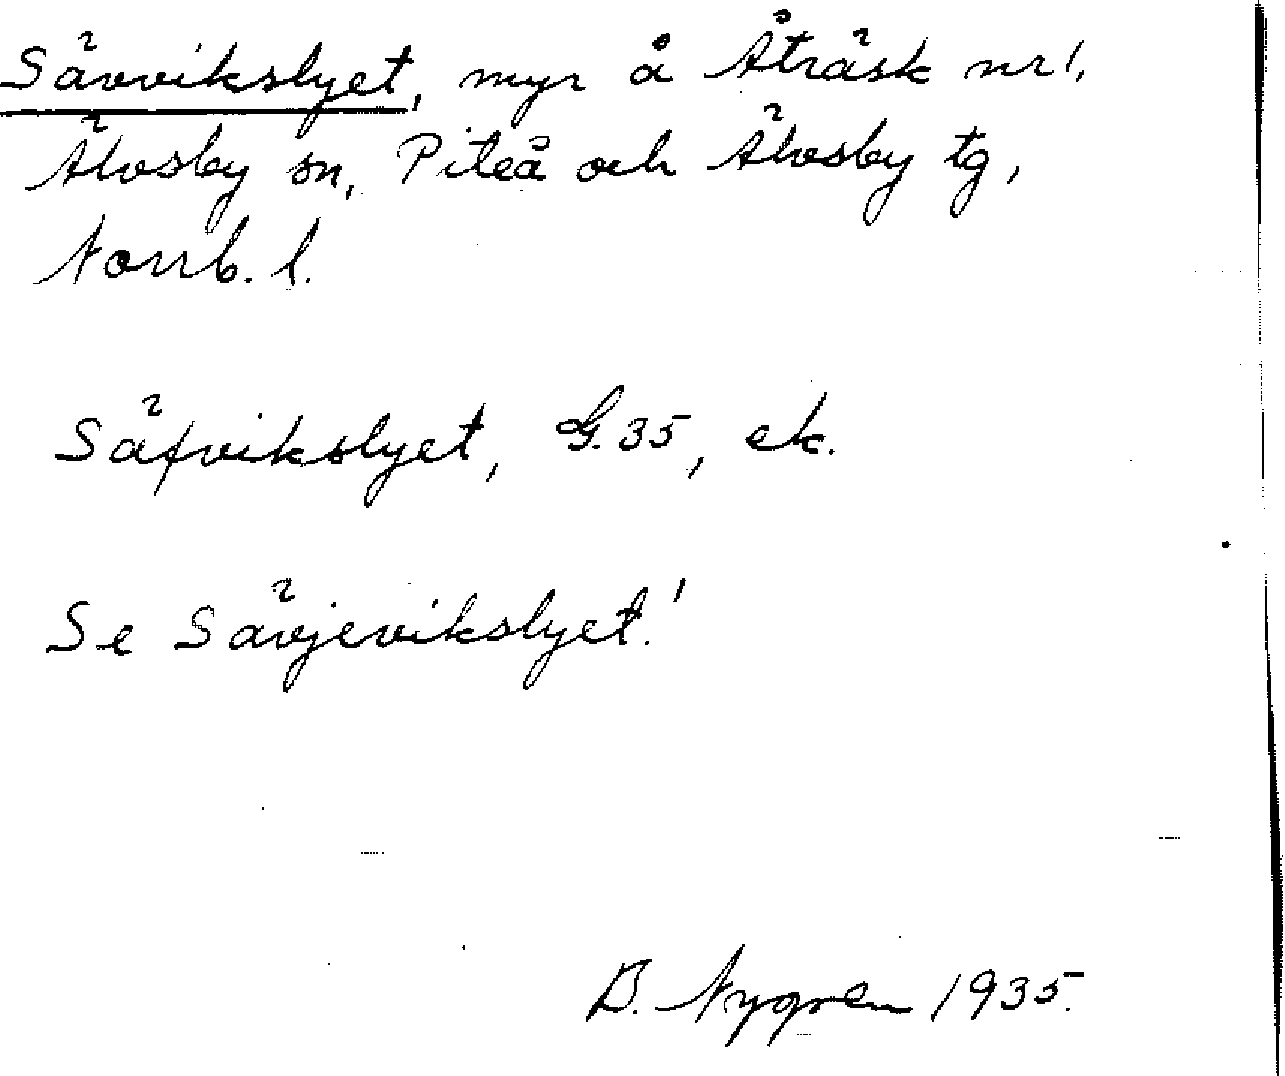 Sävvikslyet, myr å Åträsk nr 1,
Älvsby sn, Piteå och Älvsby tg,
Norrb. l.
Säfvikslyet, G. 35, ek.
Se Sävjevikslyet!
B. Nygren 1935.